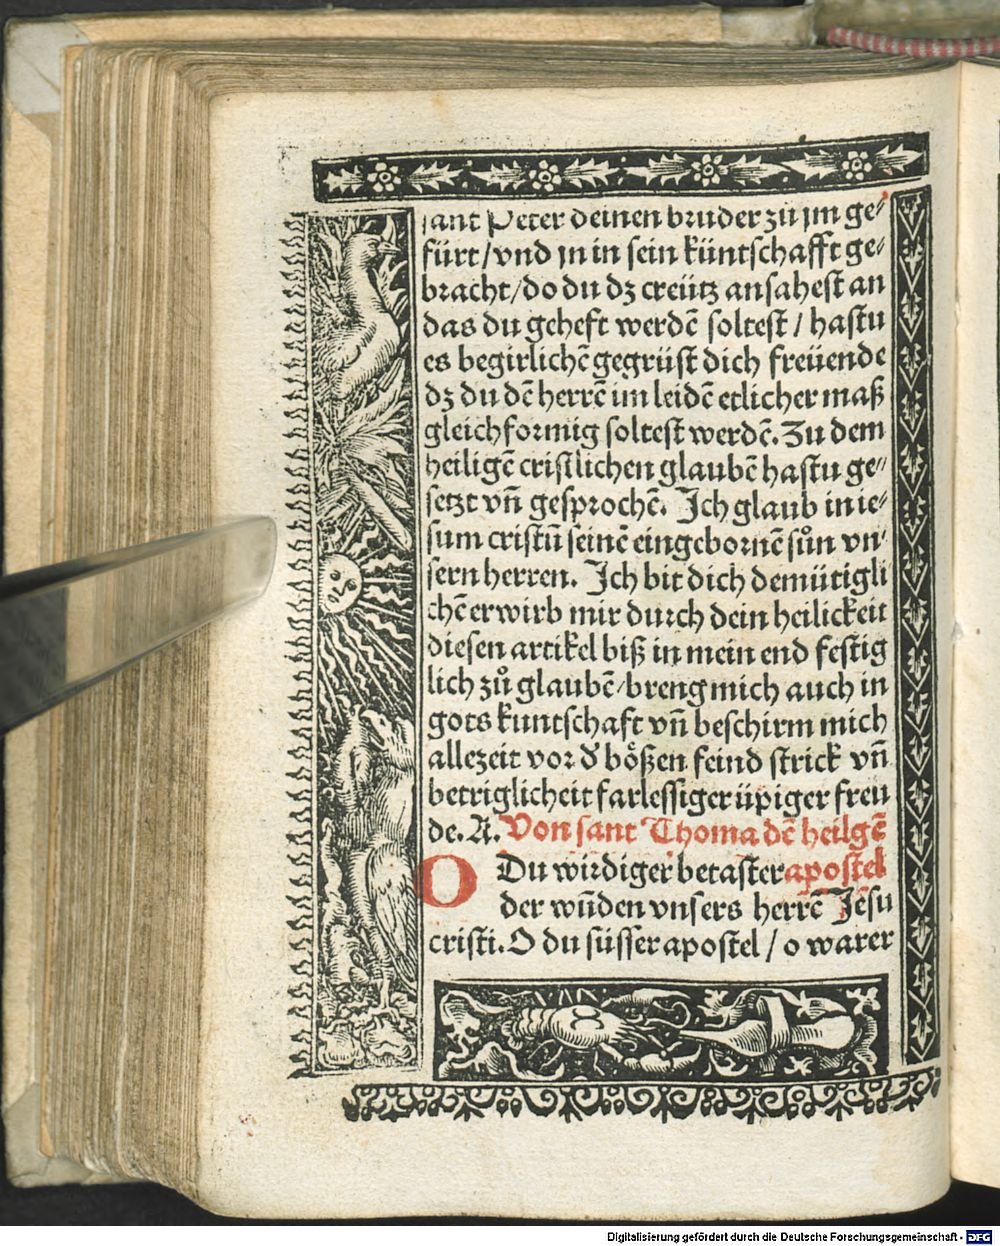 sant Peter deinen bruder zů jm ge⸗
fürt/vnd jn in sein küntschafft ge⸗
bracht/do du dz creütz ansahest an
das du geheft werdē soltest / hastu
es begirlichē gegrüst dich freüende
dz du dē herrē im leidē etlicher maß
gleichformig soltest werdē. Zu dem
heiligē cristlichen glaubē hastu ge⸗
setzt vn̄ gesprochē. Ich glaub in ie⸗
sum cristū seinē eingebornē sůn vn⸗
sern herren. Ich bit dich demütigli
chē erwirb mir durch dein heilickeit
diesen artikel biß in mein end festig
lich zů glaubē/breng mich auch in
gots kuntschaft vn̄ beschirm mich
allezeit vor d' bößen feind strick vn̄
betriglicheit farlessiger üpiger freu
de. A. Von sant Thoma dē heilgē
O Du wirdiger betaster apostel
der wūden vnsers herrē Jesu
cristi. O du süsser apostel / o warer
Digitalisierung gefördert durch die Deutsche Forschungsgemeinschaft - DFG